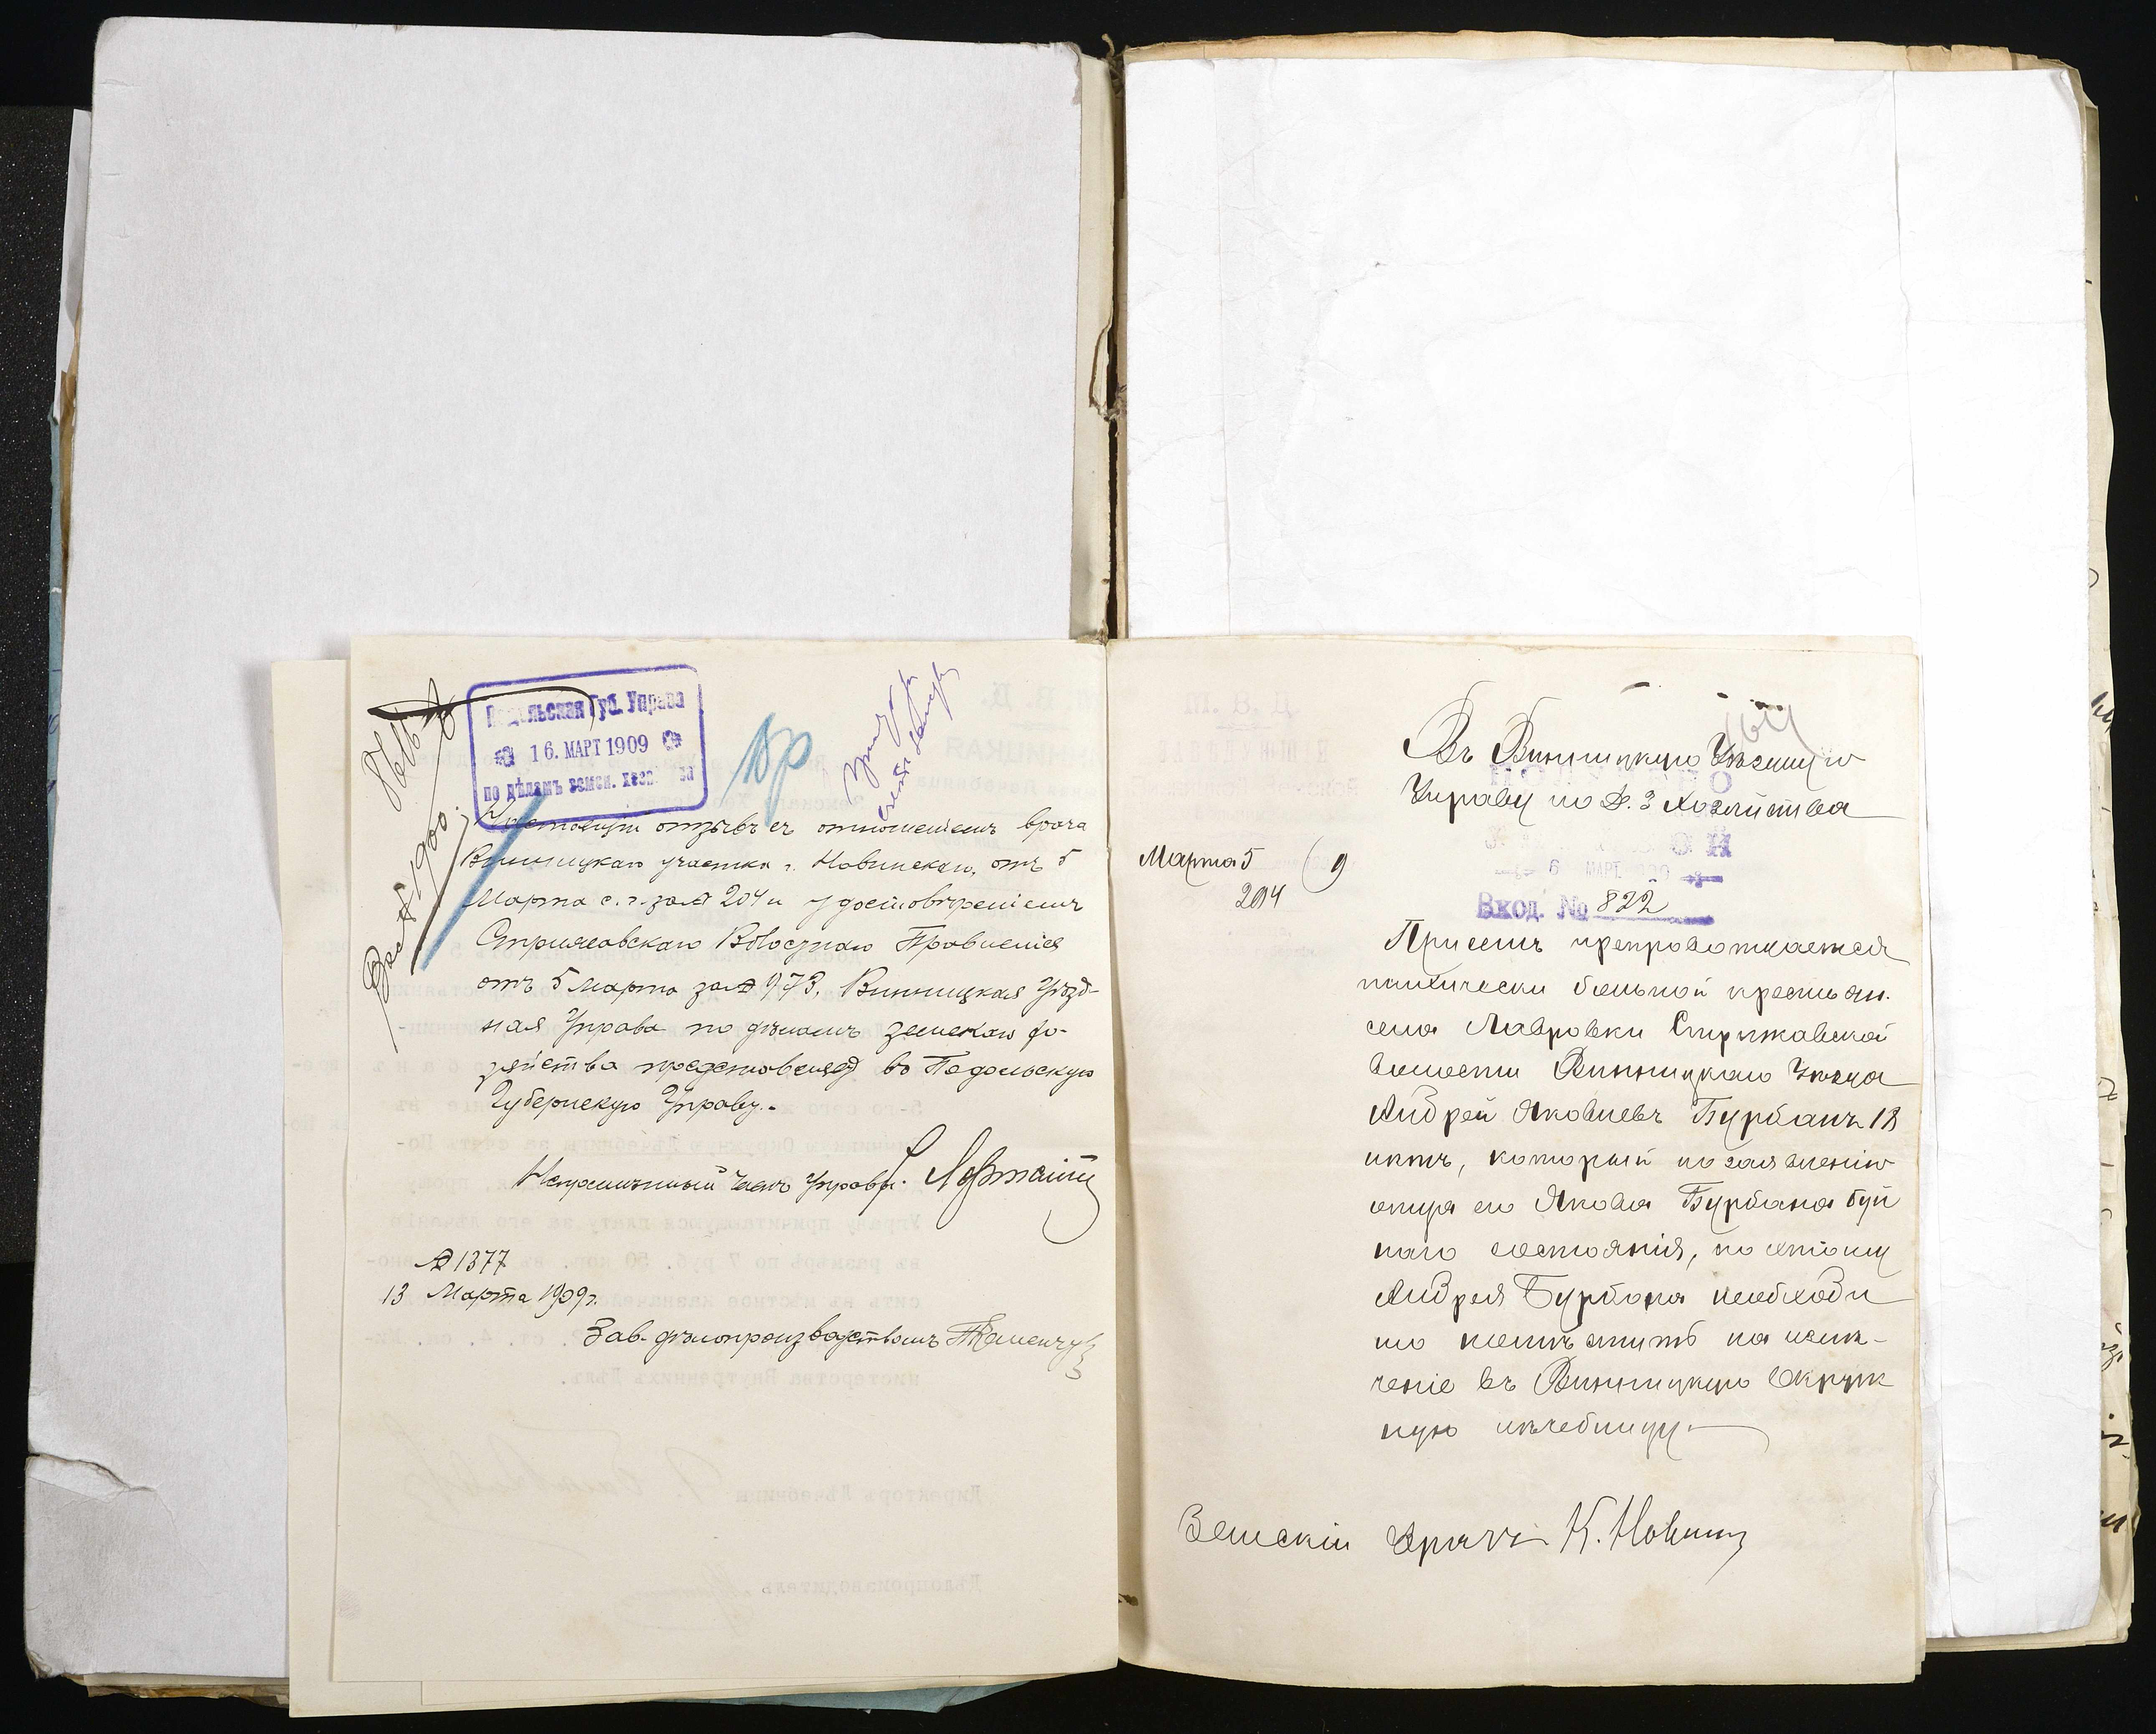 Подольская Губ. Управа
16. МАРТ 1909
по дѣламъ земск. хозяйства
Настоящій отзывъ съ отношеніемъ врача
Винницкаго участка г. Новинскаго, отъ 5
Марта с. г. за № 204 и удостовѣреніемъ
Стрижавскаго Волостнаго Правленія
отъ 5 Марта за № 973, Винницкая Уѣзд-
ная Управа по дѣламъ земскаго хо-
зяйства представляетъ въ Подольскую
Губернскую Управу.-
Непремѣнный Членъ Управы
№ 1377
13 Марта 1909 г.
Зав. дѣлопроизводствомъ
164
Въ Винницкую Уѣздную
Управу по Д. З Хозяйства
Марта 5 9
204
6 МАРТ 09
Вход. № 822
При семъ препровождается
психически больной крестьян.
села Лавровки Стрижавской
волости Винницкаго Уѣзда
Андрей Яковлевъ Бурбанъ 18
лѣтъ, который по заявленію
отца его Якова Бурбана буй
наго состоянія, по этому
Андрея Бурбана необходи
мо помѣстить на излѣ-
ченіе въ Винницкую Окруж
ную лѣчебницу
Земскій Врачъ К. Новин